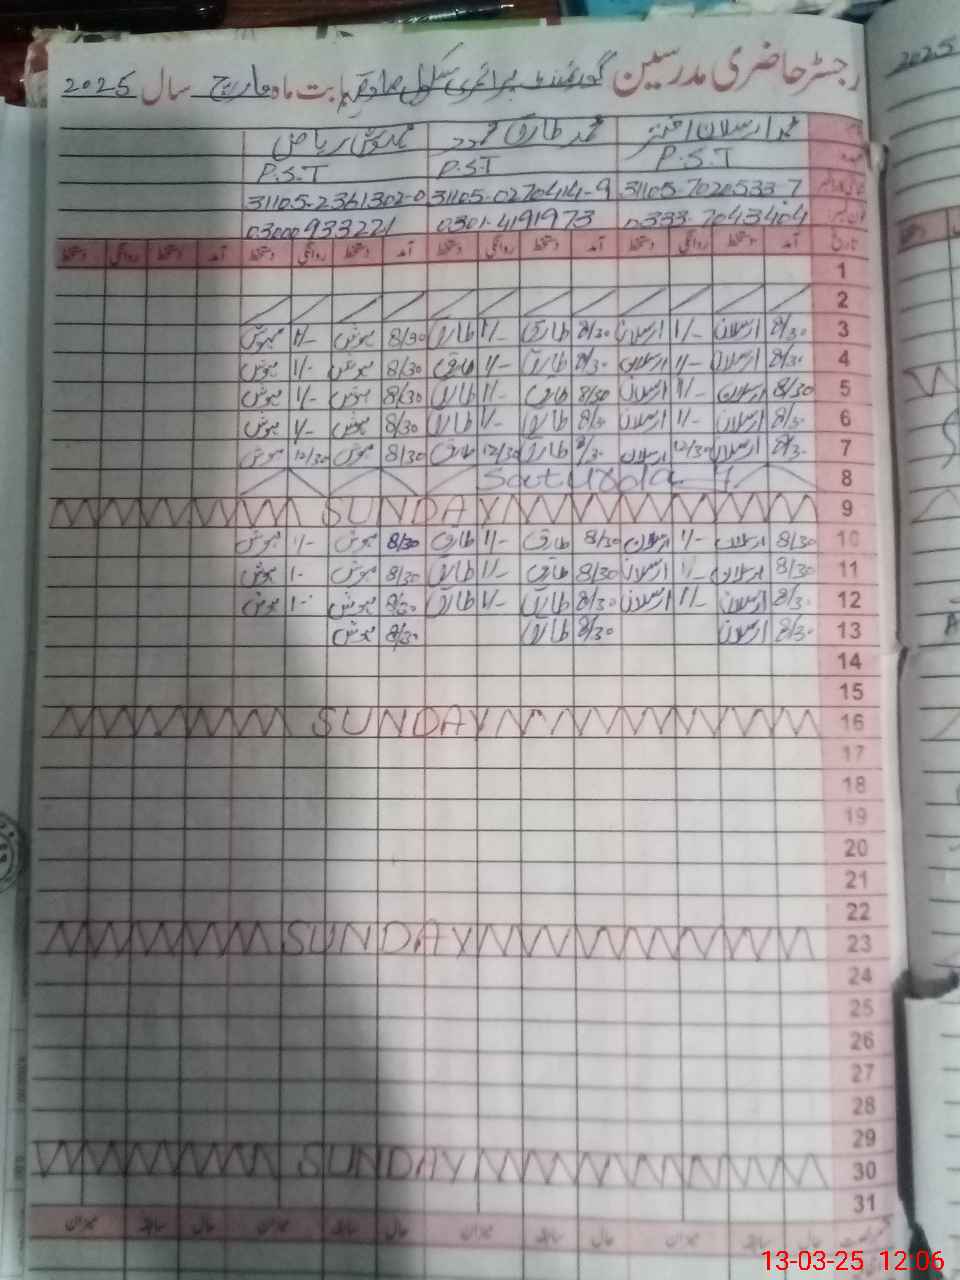 رجسٹر حاضری مدرسین گورنمنٹ پرائمری سکول بابت ماہ مارچ سال 2025
محمد ارسلان اختر محمد طارق محمد مہوش ریاض
P.S.T P.S.T P.S.T
31105-7020533-7 31105-0270414-9 31105-2361302-0
0333-7043404 0301-4191973 03000933221
تاریخ آمد دستخط روانگی دستخط آمد دستخط روانگی دستخط آمد دستخط روانگی دستخط آمد دستخط روانگی دستخط
1
2
3 8/30 ارسلان 1/- ارسلان 8/30 طارق 1/- طارق 8/30 مہوش 1/- مہوش
4 8/30 ارسلان 1/- ارسلان 8/30 طارق 1/- طارق 8/30 مہوش 1/- مہوش
5 8/30 ارسلان 1/- ارسلان 8/30 طارق 1/- طارق 8/30 مہوش 1/- مہوش
6 8/30 ارسلان 1/- ارسلان 8/30 طارق 1/- طارق 8/30 مہوش 1/- مہوش
7 8/30 ارسلان 12/30 ارسلان 8/30 طارق 12/30 طارق 8/30 مہوش 12/30 مہوش
8
9 SUNDAY
10 8/30 ارسلان 1/- ارسلان 8/30 طارق 1/- طارق 8/30 مہوش 1/- مہوش
11 8/30 ارسلان 1/- ارسلان 8/30 طارق 1/- طارق 8/30 مہوش 1- مہوش
12 8/30 ارسلان 1/- ارسلان 8/30 طارق 1/- طارق 8/30 مہوش 1- مہوش
13 8/30 ارسلان 8/30 طارق 8/30 مہوش
14
15
16 SUNDAY
17
18
19
20
21
22
23 SUNDAY
24
25
26
27
28
29
30 SUNDAY
31
حال سابقہ میزان حال سابقہ میزان حال سابقہ میزان حال سابقہ میزان
2025
13-03-25 12:06